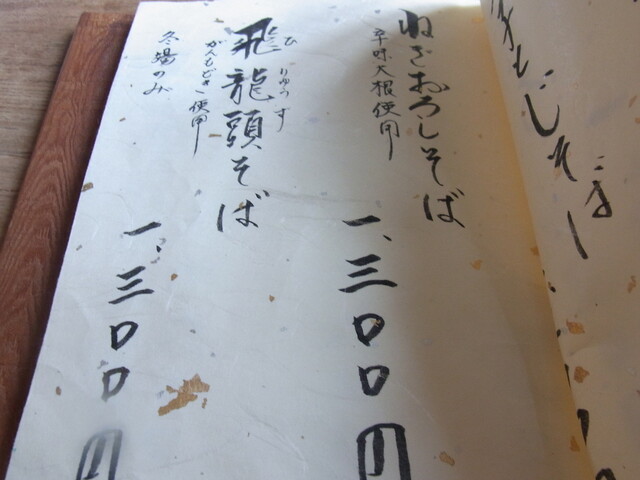 ねぎおろしそば
辛味大根使用
一、三〇〇円
飛龍頭そば
ひりゅうず
がんもどき使用
冬場のみ
一、三〇〇円